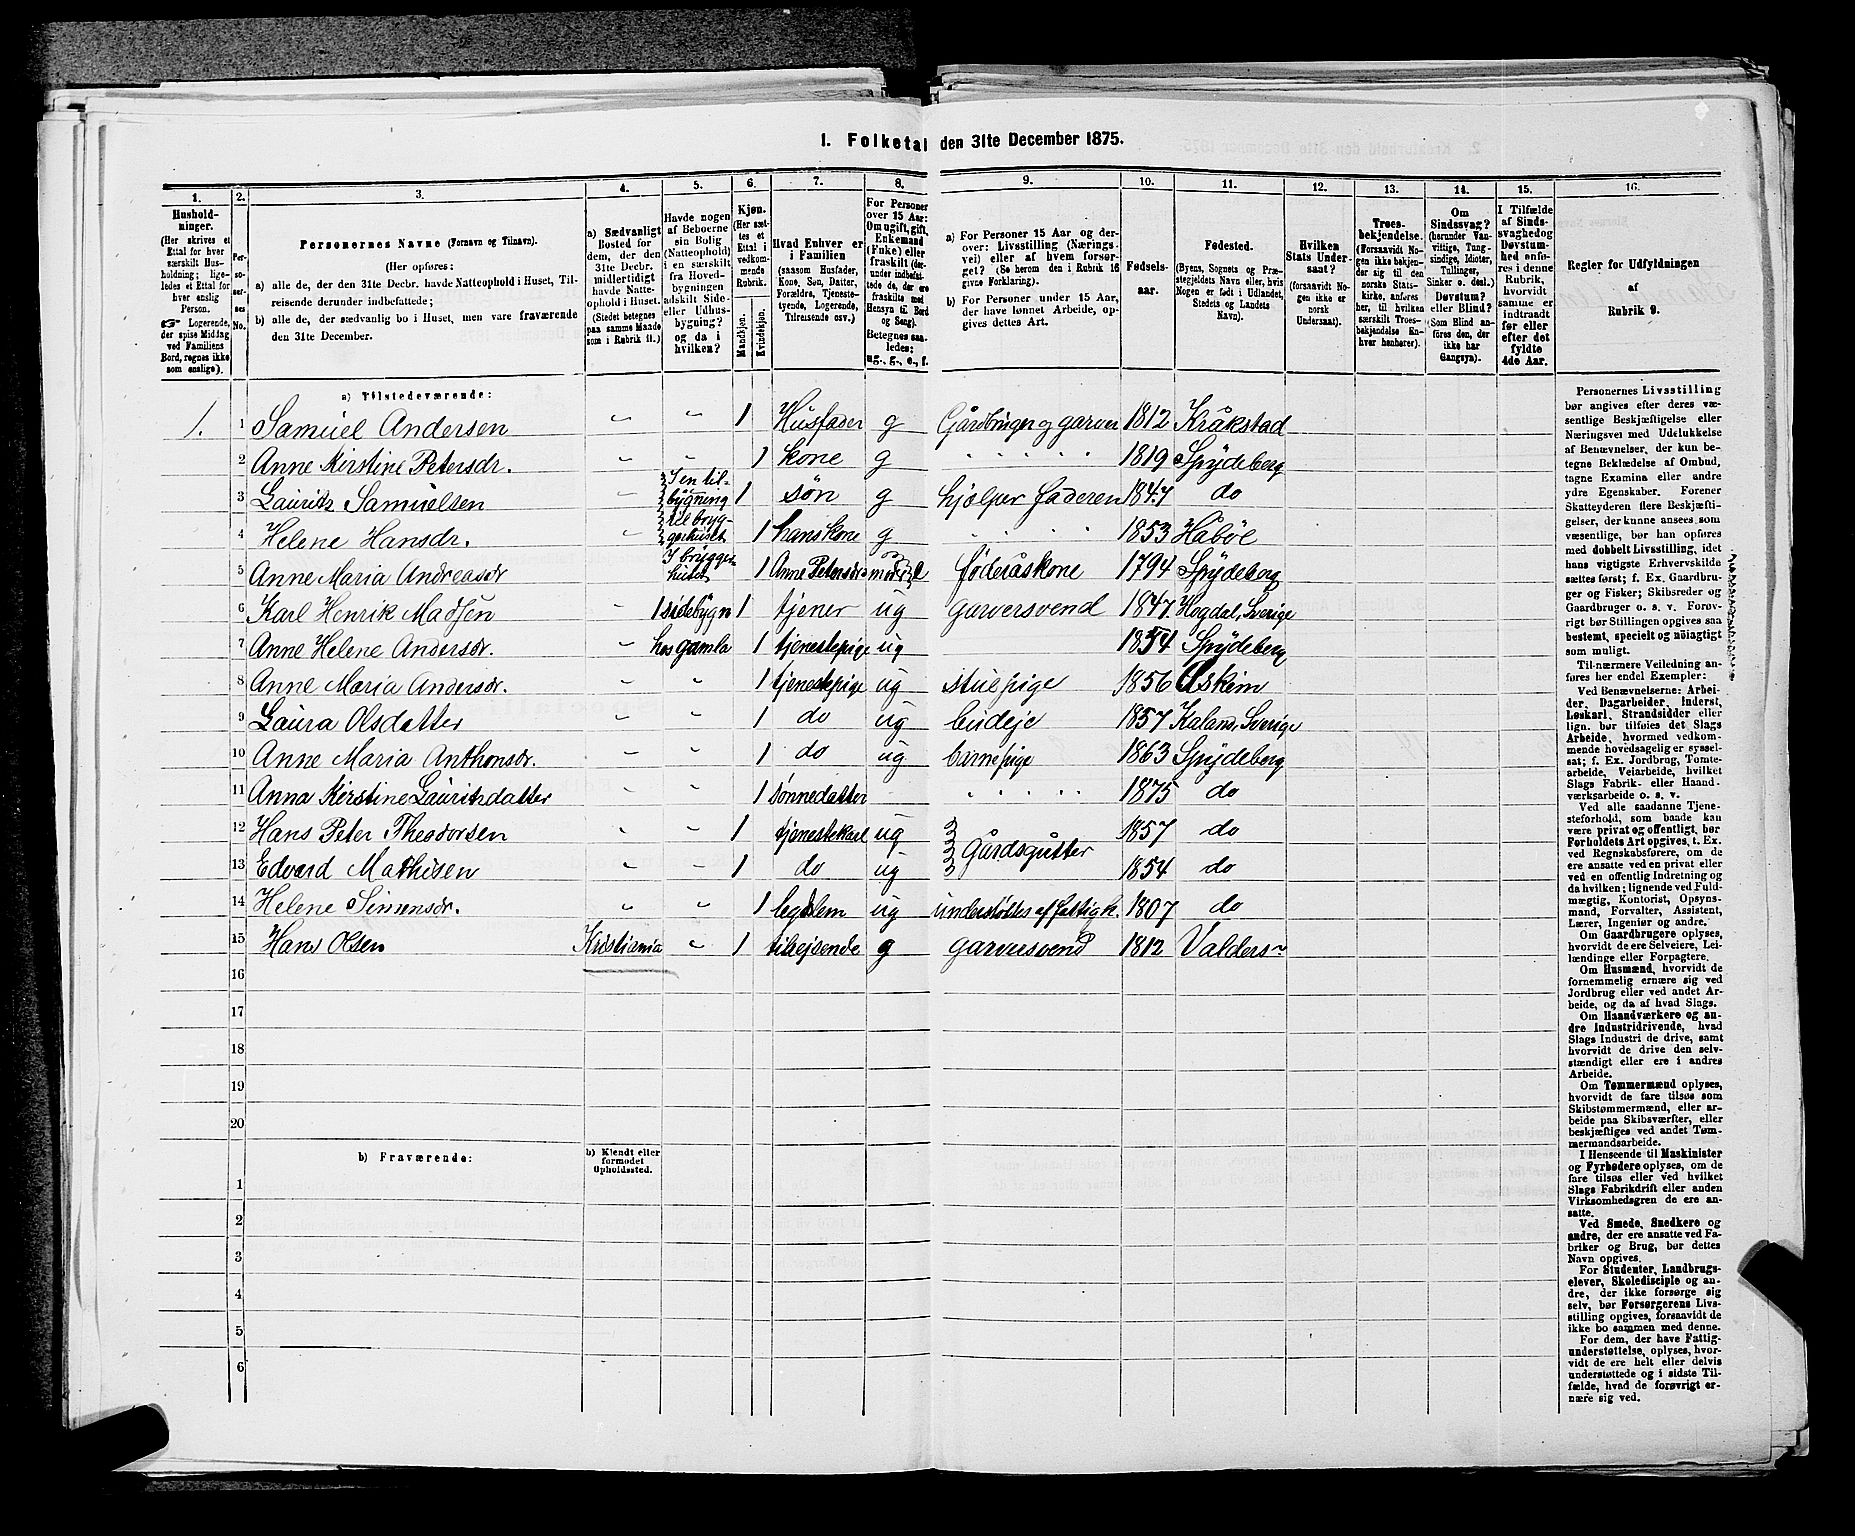 1. Folketal den 31te December 1875.
1. 2. 3. 4. 5. 6. 7. 8. 9. 10. 11. 12. 13. 14. 15. 16.
Husholdninger.
(Her skrives et
Ettal for hver
særskilt Husholdning;
ligeledes et Ettal for
hver enslig
Person.
Logerende,
der spise Middag
ved Familiens
Bord, regnes ikke
som enslige).
Personernes No.
Personernes Navne (Fornavn og Tilnavn).
(Her opføres:
a) alle de, der den 31te Decbr. havde Natteophold i Huset, Tilreisende derunder indbefattede;
b) alle de, der sædvanlig bo i Huset, men vare fraværende
den 31te December.
a) Sædvanligt
Bosted for
dem, der den
31te Decbr.
midlertidigt
havde Natteophold i Huset.
(Stedet betegnes
paa samme Maade
som i Rubrik 11.)
Havde nogen
af Beboerne
sin Bolig
(Natteophold)
i en særskilt
fra Hovedbygningen
adskilt Side- eller Udhusbygning?
og da i
hvilken?
Kjøn.
(Her sættes et
Ettal i
vedkommende
Rubrik.
Mandkjøn. Kvindekjøn.
Hvad Enhver er
i Familien
(saasom Husfader,
Kone, Søn, Datter,
Forældre, Tjenestetyende, Logerende,
Tilreisende osv.)
For Personer
over 15 Aar:
Om ugift, gift,
Enkemand
(Enke) eller
fraskilt (derunder indbefattede de, der ere
fraskilte med
Hensyn til Bord
og Seng).
Betegnes saaledes:
ug., g., e., f.
a) For Personer 15 Aar og derover: Livsstilling (Næringsvei) eller af hvem forsørget? (Se herom den i Rubrik 16
givne Forklaring).
b) For Personer under 15 Aar,
der have lønnet Arbeide, opgives dettes Art.
Fødselsaar.
Fødested.
(Byens, Sognets og Præstegjeldets Navn eller, hvis
Nogen er født i Udlandet,
Stedets og Landets
Navn).
Hvilken
Stats Undersaat?
(forsaavidt Nogen ikke er
norsk
Undersaat).
Troesbekjendelse.
(Forsaavidt Nogen ikke bekjender sig til den
norske Statskirke, anføres
her, til hvilken
særskilt Troesbekjendelse Enhver henhører).
Om
Sindssvag?
(herunder Vanvittige, Tungsindige, Idioter,
Tullinger,
Sinker o. desl.)
Døvstum?
eller Blind?
(Som Blind anføres den, der
ikke har
Gangsyn).
I Tilfælde
af Sindssvaghed og
Døvstumhed anføres i denne
Rubrik,
hvorvidt
samme er
indtraadt
før eller
efter det
fyldte
4de Aar.
Regler for Udfyldningen
af
Rubrik 9.
a) Tilstedeværende:
1. 1 Samuel Andersen " " 1 Husfader g Gårdbruger og garver 1812 Kråkstad
2 Anne Kirstine Petersdr. " " 1 kone g " " " " " 1819 Spydeberg
3 Lauritz Samuelsen " I en tilbygning 1 søn g hjælper faderen 1847 do
4 Helene Hansdr. " til bryggerhuset 1 hans kone g " " " " " 1853 Håbøl
5 Anne Maria Andreasdr I bryggerhuset 1 Anne Petersdrs moder e føderåskone 1794 Spydeberg
6 Karl Henrik Madsen " I sidebygn 1 tjener ug garversvend 1847. Hogdal, Sverige
7 Anne Helene Andersdr. " hos gamla 1 tjenestepige ug 1854 Spydeberg
8 Anne Maria Andersdr. " " 1 tjenestepige ug stuepige 1856 Askim
9 Laura Olsdatter " " 1 do ug budeje 1857 Kaland, Sverige
10 Anne Maria Anthonsdr. " " 1 do ug barnepige 1863 Spydeberg
11 Anna Kirstine Lauritzdatter " " 1 sønnedatter " " " " " 1875 do
12 Hans Peter Theodorsen " " 1 tjenestekarl ug Gårdsgutter 1857 do
13 Edvard Mathisen " " 1 do ug 1854 do
14 Helene Simensdr. " " 1 legdslem ug understøttes af fattigk. 1807 do
15 Hans Olsen Kristiania " 1 tilrejsende g garversvend 1812 Valders
16
17
18
19
20
b) Fraværende: b) Kjendt eller
formodet
Opholdssted.
1
2
3
4
5
6
Personernes Livsstilling
bør angives efter deres væsentlige Beskjæftigelse eller
Næringsvei med Udelukkelse
af Benævnelser, der kun betegne Beklædelse af Ombud,
tagne Examina eller andre
ydre Egenskaber. Forener
Skatteyderen flere Beskjæftigelser, der kunne ansees som
væsentlige, bør han opføres
med dobbelt Livsstilling, idet
hans vigtigste Erhvervskilde
sættes først; f. Ex. Gaardbruger og Fisker; Skibsreder og
Gaardbruger o. s. v. Forøvrigt bør Stillingen opgives saa
bestemt, specielt og nøiagtigt
som muligt.
Til nærmere Veiledning anføres her endel Exempler:
Ved Benævnelserne: Arbeider, Dagarbeider, Inderst,
Løskarl, Strandsidder eller
lign. bør tilføies det Slags
Arbeide, hvormed vedkommende hovedsagelig er sysselsat; f. Ex. Jordbrug, Tomtearbeide, Veiarbeide, hvilket
Slags Fabrik- eller Haandværksarbeide o. s. v.
Ved alle saadanne Tjenesteforhold, som baade kan
være privat og offentligt, bør
Forholdets Art opgives, t. Ex.
ved Regnskabsførere, om de
ere ansatte ved en privat eller
ved en offentlig Indretning og
da hvilken; lignende ved Fuldmægtig, Kontorist, Opsynsmand, Forvalter, Assistent,
Lærer, Ingeniør og andre.
Om Gaardbrugere oplyses,
hvorvidt de ere Selveiere, Leilændinge eller Forpagtere.
Om Husmænd, hvorvidt de
fornemmelig ernære sig ved
Jordbrug eller ved andet Arbeide, og da af hvad Slags.
Om Haandværkere og andre Industridrivende, hvad
Slags Industri de drive, samt
hvorvidt de drive den selvstændigt eller ere i andres
Arbeide.
Om Tømmermænd oplyses,
hvorvidt de fare tilsøs som
Skibstømmermænd, eller arbeide paa Skibsværfter, eller
beskjæftiges ved andet Tømmermandsarbeide.
I Henseende til Maskinister
og Fyrbødere oplyses, om de
fare tilsøs eller ved hvilket
Slags Fabrikdrift eller anden
Virksomhedsgren de ere ansatte.
Ved Smede, Snedkere og
andre, der ere ansatte ved Fabriker og Brug, bør dettes
Navn opgives.
For Studenter, Landbrugselever, Skoledisciple og andre, der ikke forsørge sig
selv, bør Forsørgerens Livsstilling opgives, forsaavidt de
ikke bo sammen med denne.
For dem, der have Fattigunderstøttelse, oplyses, hvorvidt de ere helt eller delvis
understøttede og i sidste Tilfælde, hvad de forøvrigt ernære sig ved.